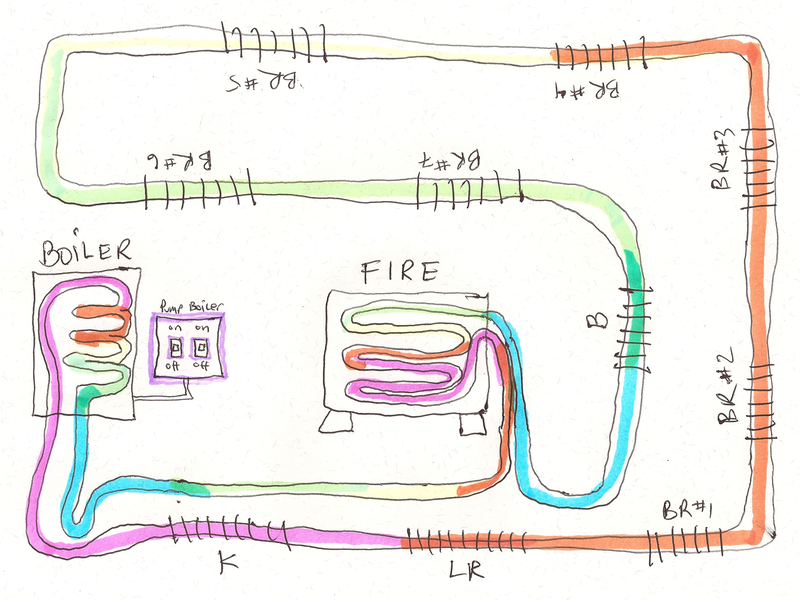 BR#5
BR#4
BR#6
BR#7
BR#3
BOiLER
FIRE
Pump Boiler
on on
off off
B
BR#2
BR#1
K
LR